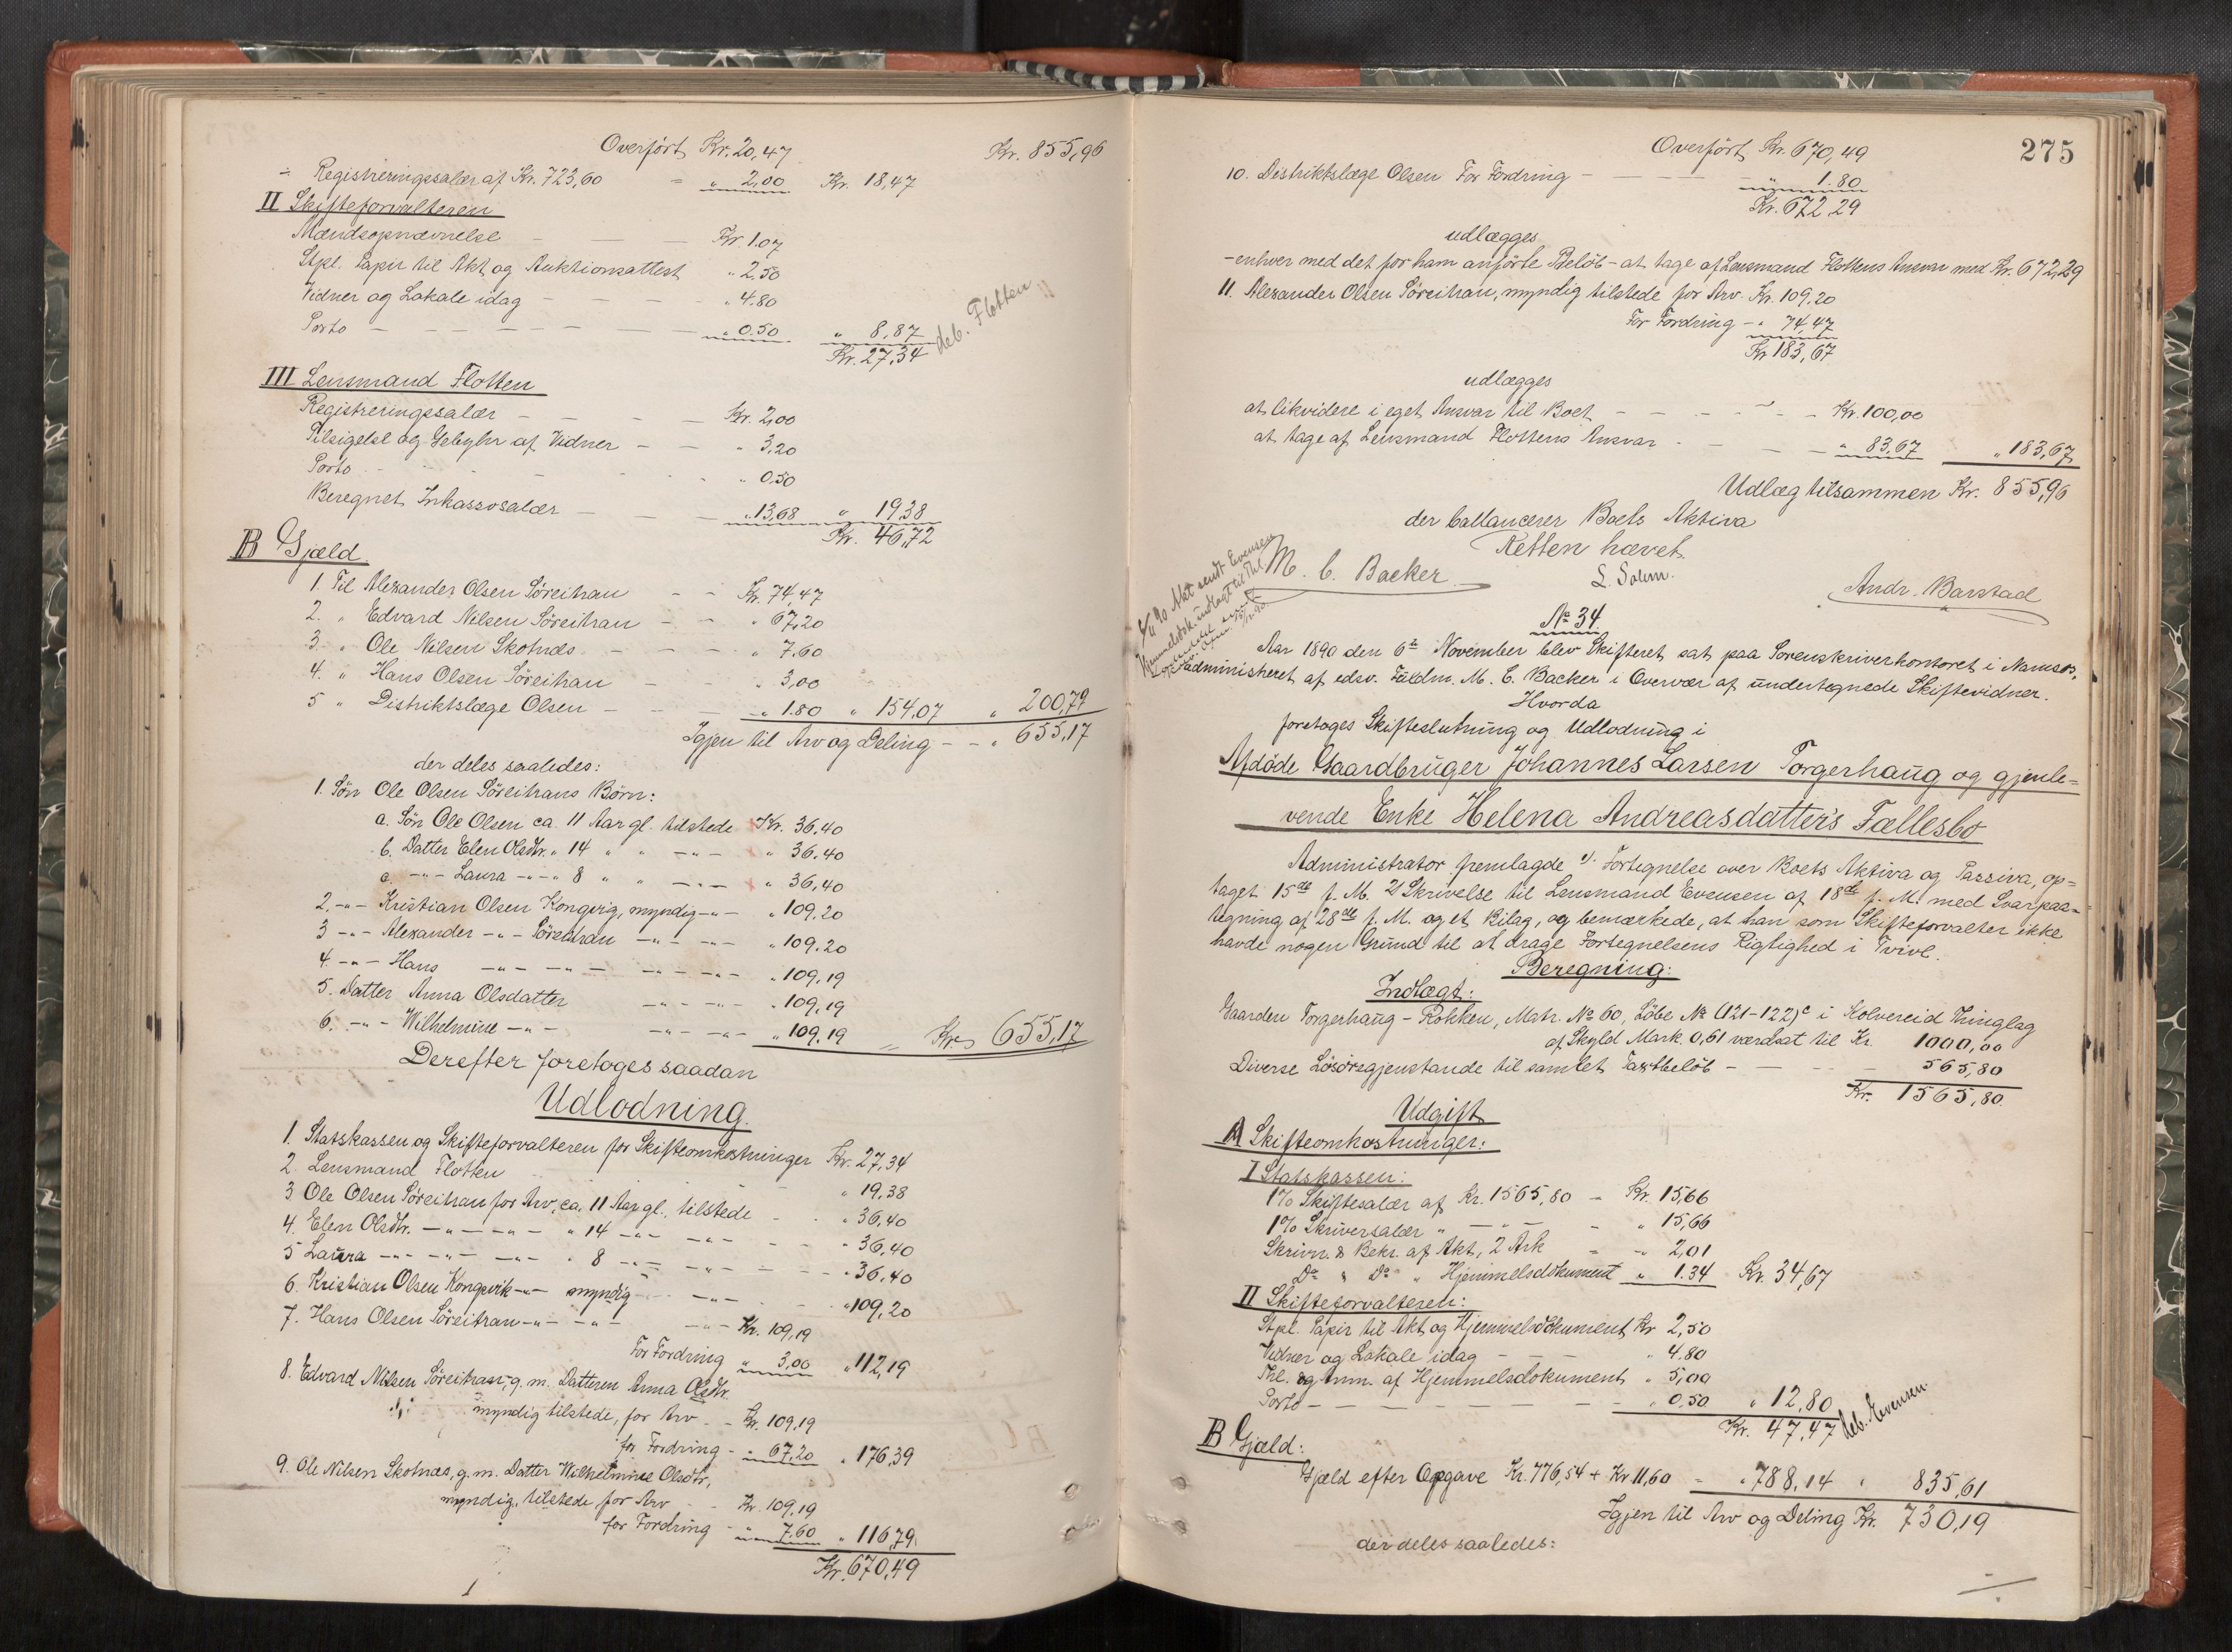 Overført Kr. 20,47 Kr. 855,96
÷ Registreringssalær af Kr. 723,60 = " 2,00 Kr. 18,47
II Skifteforvalteren
Mændsopnævnelse — — — Kr 1.07
Stpl. Papir til Akt og Auktionsattest " 2.50
Vidner og Lokale idag — — — " 4.80
Porto — — — — — — " 0.50 " 8,87
Kr. 27,34 deb. Flotten
III Lensmand Flotten
Registreringssalær — — — Kr. 2,00
Tilsigelse og Gebyhr af Vidner — — " 3,20
Porto " 0,50
Beregnet Inkassosalær — — — " 13,68 " 19,38
Kr. 46,72
B Gjæld
1. Til Alexander Olsen Söreitran — — Kr. 74,47
2. " Edvard Nilsen Söreitran — — " 67,20
3. " Ole Nilsen Skotnes — — — " 7.60
4. " Hans Olsen Söreitran — — " 3,00
5 " Distriktslæge Olsen — — — " 1.80 " 154,07 " 200,79
Igjen til Arv og Deling — — " 655,17
der deles saaledes:
1. Sön Ole Olsen Söreitrans Börn:
a. Sön Ole Olsen ca. 11 Aar gl. tilstede Kr. 36,40
b. Datter Elen Olsdtr. " 14 " " —"— " 36,40
c. —"— Laura —"— " 8 " " —"— " 36,40
2. —"— Kristian Olsen Kongvig, myndig —"— " 109,20
3 —"— Alexander —"— Söreitran —"— —"— " 109,20
4 —"— Hans —"— —"— —"— —"— " 109,19
5. Datter Anna Olsdatter —"— —"— " 109,19
6. —"— Wilhelmine —"— —"— —"— " 109,19 = Kr. 655,17
Derefter foretoges saadan
Udlodning.
1. Statskassen og Skifteforvalteren for Skifteomkostninger Kr. 27,34
2. Lensmand Flotten " 19,38
3 Ole Olsen Söreitran for Arv, ca. 11 Aar gl. tilstede " 36,40
4. Elen Olsdtr. —"— —"— " 14 —"— —"— " 36,40
5 Laura —"— —"— —"— " 8 —"— —"— " 36,40
6. Kristian Olsen Kongsvik —"— myndig —"— " 109,20
7. Hans Olsen Söreitran —"— —"— —"— Kr. 109,19
For Fordring " 3,00 " 112,19
8. Edvard Nilsen Söreitran, g. m. Datteren Anna Olsdtr.
myndig tilstede, for Arv — Kr. 109,19
for Fordring — " 67,20 " 176,39
9. Ole Nilsen Skotnes, g. m. Datter Wilhelmine Olsdtr,
myndig, tilstede for Arv — Kr. 109,19
for Fordring — " 7,60 " 116,79
Kr. 670,49
275
Overført Kr. 670,49
10. Distriktslæge Olsen For Fordring — — — — " 1.80
Kr. 672,29
udlægges
– enhver med det for ham anförte Belöb – at tage af Lensmand Flottens Ansvar med Kr. 672,29
11. Alexander Olsen Söreitran, myndig tilstede for Arv. Kr. 109,20
For Fordring — " 74,47
Kr 183,67
udlægges
at likvidere i eget Ansvar til Boet — — — — Kr. 100,00
at tage af Lensmand Flottens Ansvar — — " 83,67 " 183,67
Udlæg tilsammen Kr. 855,96
der ballancerer Boets Aktiva
Retten hævet.
M. C. Backer L. Solem. Andr. Barstad
Akt sendt Evensen
Hjemmelsdok. indlagt til Thl.
No 34.
Aar 1890 den 6te November blev Skifteret sat paa Sorenskriverkontoret i Namsos,
administreret af edsv. Fuldm. M. C. Backer i Overvær af undertegnede Skiftevidner.
Hvorda
foretoges Skifteslutning og Udlodning i
Afdöde Gaardbruger Johannes Larsen Torgerhaug og gjenle=
vende Enke Helena Andreasdatter's Fællesbo
Administrator fremlagde 1/. Fortegnelse over Boets Aktiva og Passiva, op=
taget 15de f. M. 2/ Skrivelse til Lensmand Evensen af 18de f. M. med Svarpaa=
tegning af 28de f. M. og et Bilag, og bemærkede, at han som Skifteforvalter ikke
havde nogen Grund til at drage Fortegnelsens Rigtighed i Tvivl.
Beregning:
Indtægt:
Gaarden Torgerhaug – Rokken, Matr. No 60, Löbe No (121–122)c i Kolvereid Thinglag
af Skyld Mark. 0,61 værdsat til Kr. 1000,00
Diverse Lösöregjenstande til samlet Taxtbelöb — — — 565,80
Kr. 1565,80
Udgift
A Skifteomkostninger:
I Statskassen:
1% Skiftesalær af Kr. 1565,80 — Kr. 15,66
1% Skriversalær " —"— — " 15,66
Skrivn. & Bekr. af Akt, 2 Ark — " 2,01
Do & Do " Hjemmelsdokument " 1.34 Kr. 34,67
II Skifteforvalteren:
Stpl. Papir til Akt og Hjemmelsdokument Kr 2,50
Vidner og Lokale idag — — — " 4.80
Thl. og Anm. af Hjemmelsdokument " 5,00
Porto — — — — — — " 0,50 " 12,80
Kr. 47,47 deb. Evensen.
B Gjæld:
Gjæld efter Opgave Kr. 776,54 + Kr 11,60 = " 788,14 " 835,61
Igjen til Arv og Deling Kr. 730,19
der deles saaledes: